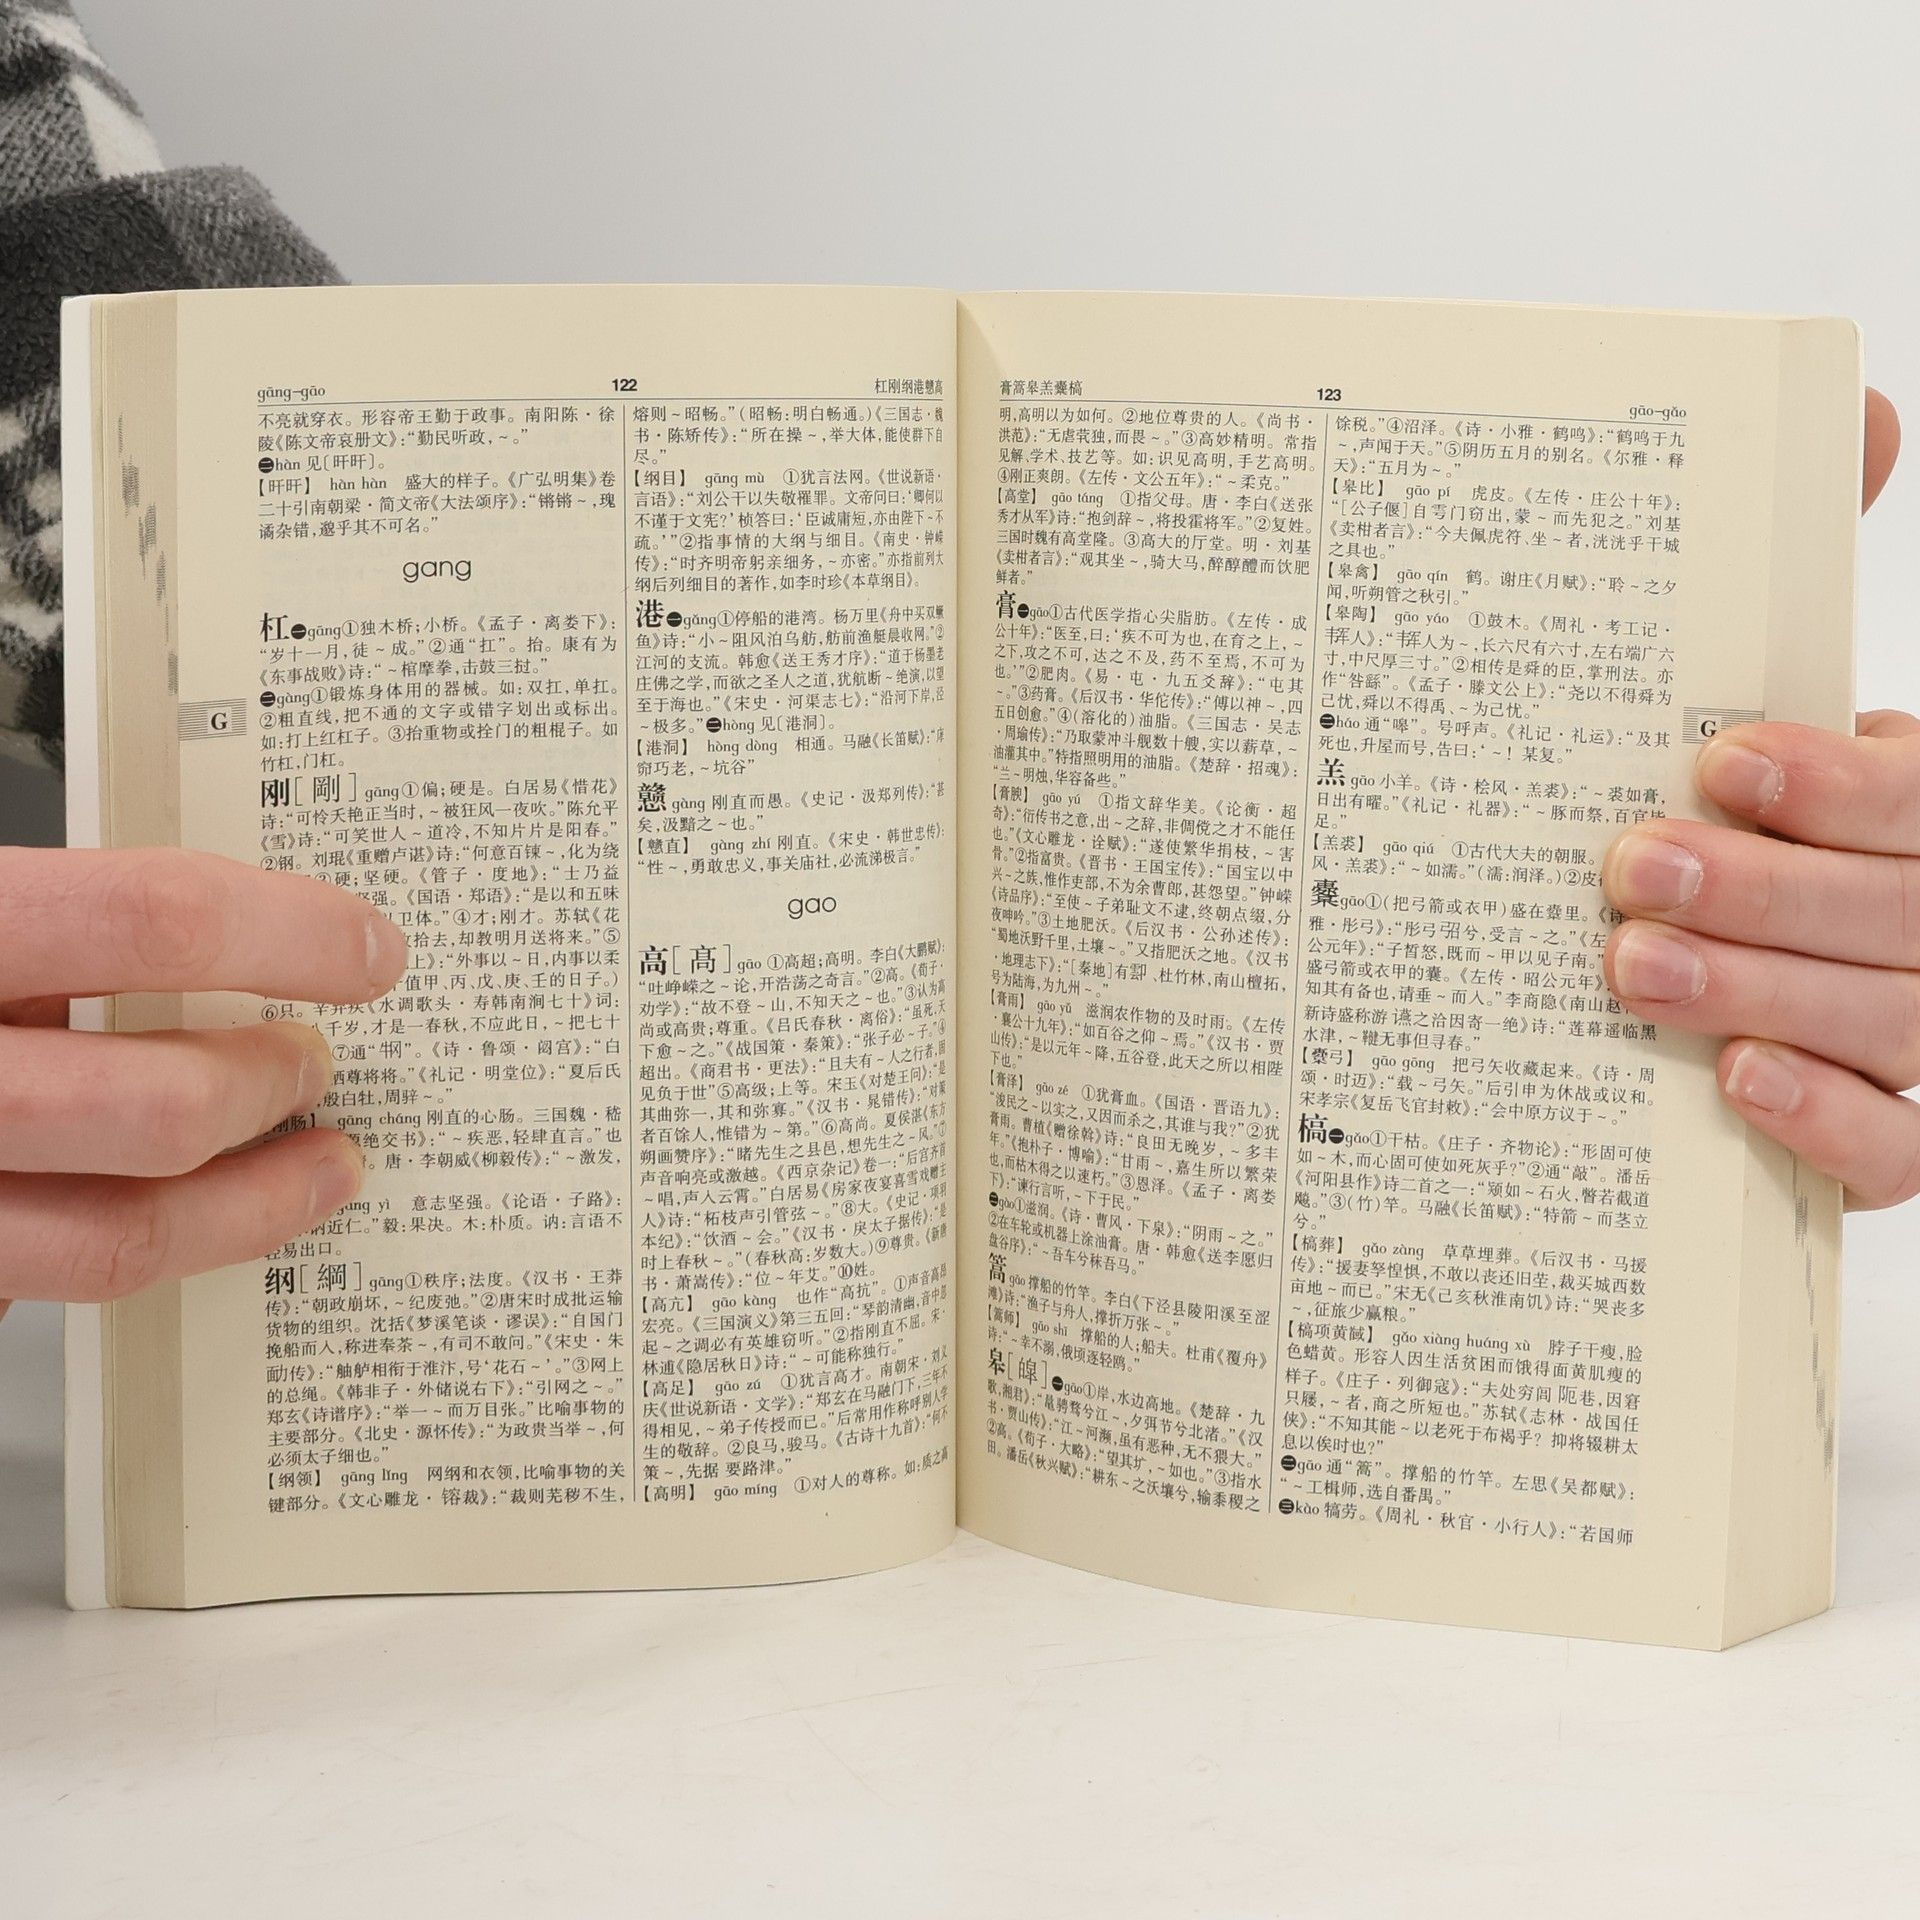 gāng–gāo
122
杠刚纲港戆高
不亮就穿衣。形容帝王勤于政事。南阳陈·徐
陵《陈文帝哀册文》:“勤民听政,~。”
㊁hàn 见〔旰旰〕。
【旰旰】 hàn hàn 盛大的样子。《广弘明集》卷
二十引南朝梁·简文帝《大法颂序》:“锵锵~,瑰
谲杂错,邈乎其不可名。”
gang
杠㊀gāng①独木桥;小桥。《孟子·离娄下》:
“岁十一月,徒~成。”②通“扛”。抬。康有为
《东事战败》诗:“~棺摩拳,击鼓三挝。”
㊁gàng①锻炼身体用的器械。如:双扛,单扛。
②粗直线,把不通的文字或错字划出或标出。
如:打上红杠子。③抬重物或拴门的粗棍子。如
竹杠,门杠。
刚[剛]gāng①偏;硬是。白居易《惜花》
诗:“可怜夭艳正当时,~被狂风一夜吹。”陈允平
《雪》诗:“可笑世人~道冷,不知片片是阳春。”
②钢。刘琨《重赠卢谌》诗:“何意百铼~,化为绕
硬;坚硬。《管子·度地》:“士乃益
坚强。《国语·郑语》:“是以和五味
卫体。”④才;刚才。苏轼《花
拾去,却教明月送将来。”⑤
上》:“外事以~日,内事以柔
值甲、丙、戊、庚、壬的日子。)
⑥只。辛弃疾《水调歌头·寿韩南涧七十》词:
八千岁,才是一春秋,不应此日,~把七十
⑦通“牨”。《诗·鲁颂·閟宫》:“白
牺尊将将。”《礼记·明堂位》:“夏后氏
殷白牡,周骍~。”
刚肠】 gāng cháng 刚直的心肠。三国魏·嵇
绝交书》:“~疾恶,轻肆直言。”也
唐·李朝威《柳毅传》:“~激发,
gāng yì 意志坚强。《论语·子路》:
讷近仁。”毅:果决。木:朴质。讷:言语不
轻易出口。
纲[綱]gāng①秩序;法度。《汉书·王莽
传》:“朝政崩坏,~纪废弛。”②唐宋时成批运输
货物的组织。沈括《梦溪笔谈·谬误》:“自国门
挽船而入,称进奉茶~,有司不敢问。”《宋史·朱
勔传》:“舳舻相衔于淮汴,号‘花石~’。”③网上
的总绳。《韩非子·外储说右下》:“引网之~。”
郑玄《诗谱序》:“举一~而万目张。”比喻事物的
主要部分。《北史·源怀传》:“为政贵当举~,何
必须太子细也。”
【纲领】 gāng lǐng 网纲和衣领,比喻事物的关
键部分。《文心雕龙·镕裁》:“裁则芜秽不生,
熔则~昭畅。”(昭畅:明白畅通。)《三国志·魏
书·陈矫传》:“所在操~,举大体,能使群下自
尽。”
【纲目】 gāng mù ①犹言法网。《世说新语·
言语》:“刘公干以失敬罹罪。文帝问曰:‘卿何以
不谨于文宪?’桢答曰:‘臣诚庸短,亦由陛下~不
疏。’”②指事情的大纲与细目。《南史·钟嵘
传》:“时齐明帝躬亲细务,~亦密。”亦指前列大
纲后列细目的著作,如李时珍《本草纲目》。
港㊀gǎng①停船的港湾。杨万里《舟中买双鳜
鱼》诗:“小~阻风泊乌舫,舫前渔艇晨收网。”②
江河的支流。韩愈《送王秀才序》:“道于杨墨老
庄佛之学,而欲之圣人之道,犹航断~绝潢,以望
至于海也。”《宋史·河渠志七》:“沿河下岸,泾
~极多。”㊁hòng 见[港洞]。
【港洞】 hòng dòng 相通。马融《长笛赋》:“庨
窌巧老,~坑谷”
戆 gàng 刚直而愚。《史记·汲郑列传》:“甚
矣,汲黯之~也。”
【戆直】 gàng zhí 刚直。《宋史·韩世忠传》:
“性~,勇敢忠义,事关庙社,必流涕极言。”
gao
高[髙]gāo ①高超;高明。李白《大鹏赋》:
“吐峥嵘之~论,开浩荡之奇言。”②高。《荀子·
劝学》:“故不登~山,不知天之~也。”③认为高
尚或高贵;尊重。《吕氏春秋·离俗》:“虽死,天
下愈~之。”《战国策·秦策》:“张子必~子。”④
超出。《商君书·更法》:“且夫有~人之行者,固
见负于世”⑤高级;上等。宋玉《对楚王问》:“是
其曲弥~,其和弥寡。”《汉书·晁错传》:“对策
者百馀人,惟错为~第。”⑥高尚。夏侯湛《东方
朔画赞序》:“睹先生之县邑,想先生之~风。”⑦
声音响亮或激越。《西京杂记》卷一:“后宫齐首
~唱,声入云霄。”白居易《房家夜宴喜雪戏赠主
人》诗:“柘枝声引管弦~。”⑧大。《史记·项羽
本纪》:“饮酒~会。”《汉书·戾太子据传》:“是
时上春秋~。”(春秋高:岁数大。)⑨尊贵。《新唐
书·萧嵩传》:“位~年艾。”⑩姓。
【高亢】 gāo kàng 也作“高抗”。①声音高昂
宏亮。《三国演义》第三五回:“琴韵清幽,音中忽
起~之调必有英雄窃听。”②指刚直不屈。宋·
林逋《隐居秋日》诗:“~可能称独行。”
【高足】 gāo zú ①犹言高才。南朝宋·刘义
庆《世说新语·文学》:“郑玄在马融门下,三年不
得相见,~弟子传授而已。”后常用作称呼别人学
生的敬辞。②良马,骏马。《古诗十九首》:“何不
策~,先据要路津。”
【高明】 gāo míng ①对人的尊称。如:质之高
G
膏篙皋羔櫜槁
123
gāo–gǎo
明,高明以为如何。②地位尊贵的人。《尚书·
洪范》:“无虐茕独,而畏~。”③高妙精明。常指
见解、学术、技艺等。如:识见高明,手艺高明。
④刚正爽朗。《左传·文公五年》:“~柔克。”
【高堂】 gāo táng ①指父母。唐·李白《送张
秀才从军》诗:“抱剑辞~,将投霍将军。”②复姓。
三国时魏有高堂隆。③高大的厅堂。明·刘基
《卖柑者言》:“观其坐~,骑大马,醉醇醴而饫肥
鲜者。”
膏㊀gāo①古代医学指心尖脂肪。《左传·成
公十年》:“医至,曰:‘疾不可为也,在肓之上,~
之下,攻之不可,达之不及,药不至焉,不可为
也。’”②肥肉。《易·屯·九五爻辞》:“屯其
~。”③药膏。《后汉书·华佗传》:“傅以神~,四
五日创愈。”④(溶化的)油脂。《三国志·吴志
·周瑜传》:“乃取蒙冲斗舰数十艘,实以薪草,~
油灌其中。”特指照明用的油脂。《楚辞·招魂》:
“兰~明烛,华容备些。”
【膏腴】 gāo yú ①指文辞华美。《论衡·超
奇》:“衍传书之意,出~之辞,非倜傥之才不能任
也。”《文心雕龙·诠赋》:“遂使繁华损枝,~害
骨。”②指富贵。《晋书·王国宝传》:“国宝以中
兴~之族,惟作吏部,不为余曹郎,甚怨望。”钟嵘
《诗品序》:“至使~子弟耻文不逮,终朝点缀,分
夜呻吟。”③土地肥沃。《后汉书·公孙述传》:
“蜀地沃野千里,土壤~。”又指肥沃之地。《汉书
·地理志下》:“[秦地]有鄠、杜竹林,南山檀拓,
号为陆海,为九州~。”
【膏雨】 gāo yǔ 滋润农作物的及时雨。《左传
·襄公十九年》:“如百谷之仰~焉。”《汉书·贾
山传》:“是以元年~降,五谷登,此天之所以相陛
下也。”
【膏泽】 gāo zé ①犹膏血。《国语·晋语九》:
“浚民之~以实之,又因而杀之,其谁与我?”②犹
膏雨。曹植《赠徐斡》诗:“良田无晚岁,~多丰
年。”《抱朴子·博喻》:“甘雨~,嘉生所以繁荣
也,而枯木得之以速朽。”③恩泽。《孟子·离娄
下》:“谏行言听,~下于民。”
㊁gào①滋润。《诗·曹风·下泉》:“阴雨~之。”
②在车轮或机器上涂油膏。唐·韩愈《送李愿归
盘谷序》:“~吾车兮秣吾马。”
篙 gāo 撑船的竹竿。李白《下泾县陵阳溪至涩
滩》诗:“渔子与舟人,撑折万张~。”
【篙师】 gāo shī 撑船的人;船夫。杜甫《覆舟》
诗:“~幸不溺,俄顷逐轻鸥。”
皋[皞]㊀gāo①岸,水边高地。《楚辞·九
歌,湘君》:“鼂骋骛兮江~,夕弭节兮北渚。”《汉
书·贾山传》:“江~河濒,虽有恶种,无不猥大。”
②高。《荀子·大略》:“望其圹,~如也。”③指水
田。潘岳《秋兴赋》:“耕东~之沃壤兮,输黍稷之
馀税。”④沼泽。《诗·小雅·鹤鸣》:“鹤鸣于九
~,声闻于天。”⑤阴历五月的别名。《尔雅·释
天》:“五月为~。”
【皋比】 gāo pí 虎皮。《左传·庄公十年》:
“[公子偃]自雩门窃出,蒙~而先犯之。”刘基
《卖柑者言》:“今夫佩虎符、坐~者,洸洸乎干城
之具也。”
【皋禽】 gāo qín 鹤。谢庄《月赋》:“聆~之夕
闻,听朔管之秋引。”
【皋陶】 gāo yáo ①鼓木。《周礼·考工记·
韗人》:“韗人为~,长六尺有六寸,左右端广六
寸,中尺厚三寸。”②相传是舜的臣,掌刑法。亦
作“咎繇”。《孟子·滕文公上》:“尧以不得舜为
己忧,舜以不得禹、~为己忧。”
㊁háo 通“嗥”。号呼声。《礼记·礼运》:“及其
死也,升屋而号,告曰:‘~!某复。”
羔 gāo 小羊。《诗·桧风·羔裘》:“~裘如膏,
日出有曜。”《礼记·礼器》:“~豚而祭,百官皆
足。”
【羔裘】 gāo qiú ①古代大夫的朝服。
风·羔裘》:“~如濡。”(濡:润泽。)②皮
櫜gāo①(把弓箭或衣甲)盛在櫜里。《诗
雅·彤弓》:“彤弓弨兮,受言~之。”《左
公元年》:“子皙怒,既而~甲以见子南。”
盛弓箭或衣甲的囊。《左传·昭公元年》
知其有备也,请垂~而入。”李商隐《南山赵
新诗盛称游䜩之洽因寄一绝》诗:“莲幕遥临黑
水津,~鞬无事但寻春。”
【櫜弓】 gāo gōng 把弓矢收藏起来。《诗·周
颂·时迈》:“载~弓矢。”后引申为休战或议和。
宋孝宗《复岳飞官封敕》:“会中原方议于~。”
槁㊀gǎo①干枯。《庄子·齐物论》:“形固可使
如~木,而心固可使如死灰乎?”②通“敲”。潘岳
《河阳县作》诗二首之一:“颎如~石火,瞥若截道
飚。”③(竹)竿。马融《长笛赋》:“特箭~而茎立
兮。”
【槁葬】 gǎo zàng 草草埋葬。《后汉书·马援
传》:“援妻孥惶惧,不敢以丧还旧茔,裁买城西数
亩地~而已。”宋无《己亥秋淮南饥》诗:“哭丧多
~,征旅少赢粮。”
【槁项黄馘】 gǎo xiàng huáng xù 脖子干瘦,脸
色蜡黄。形容人因生活贫困而饿得面黄肌瘦的
样子。《庄子·列御寇》:“夫处穷闾阨巷,因窘
只屦,~者,商之所短也。”苏轼《志林·战国任
侠》:“不知其能~以老死于布褐乎?抑将辍耕太
息以俟时也?”
㊁gāo 通“篙”。撑船的竹竿。左思《吴都赋》:
“~工楫师,选自番禺。”
㊂kào 犒劳。《周礼·秋官·小行人》:“若国师
G